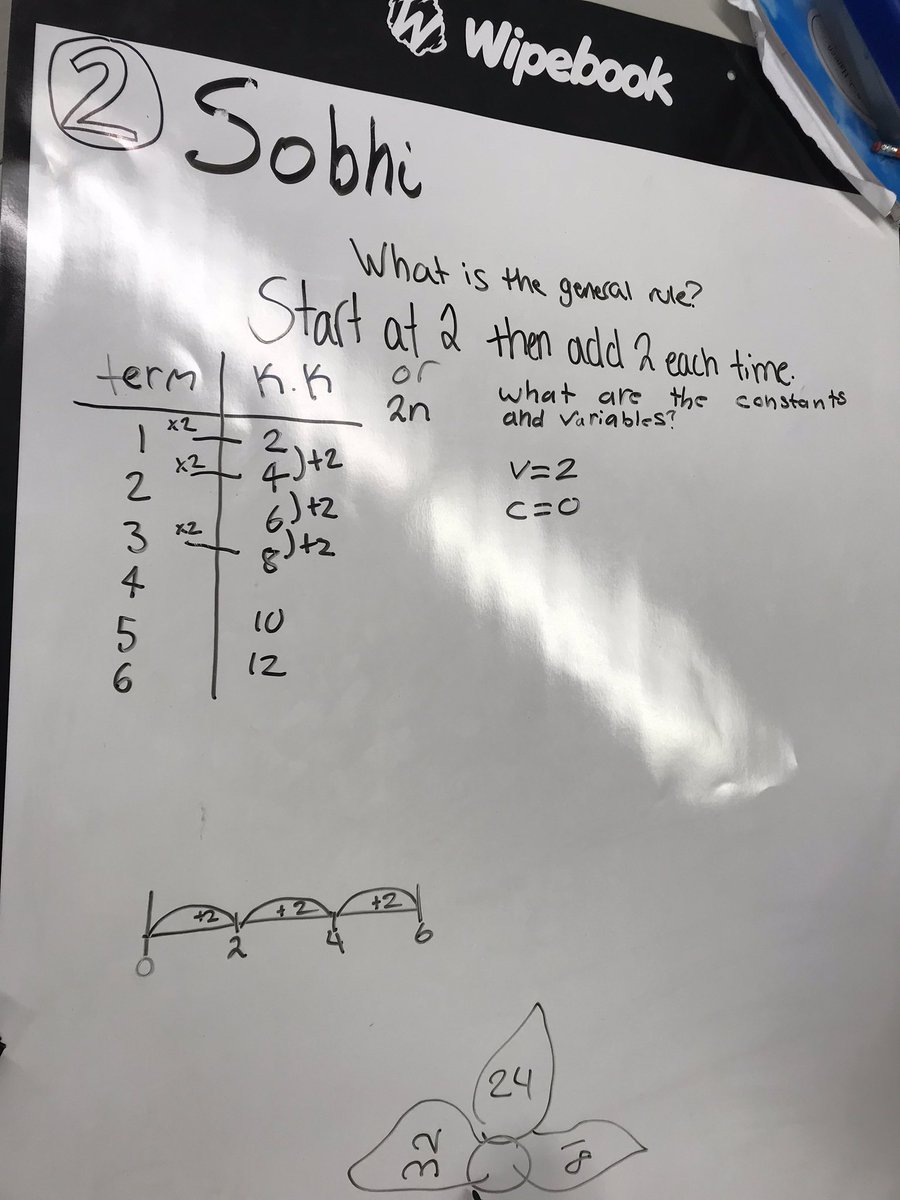 Wipebook
2 Sobhi
What is the general rule?
Start at 2 then add 2 each time.
or
2n
term K.K
1 x2 2
2 x2 4 )+2
3 x2 6 )+2
4 8 )+2
5 10
6 12
what are the constants
and variables?
V=2
C=0
+2 +2 +2
0 2 4 6
24
32
18